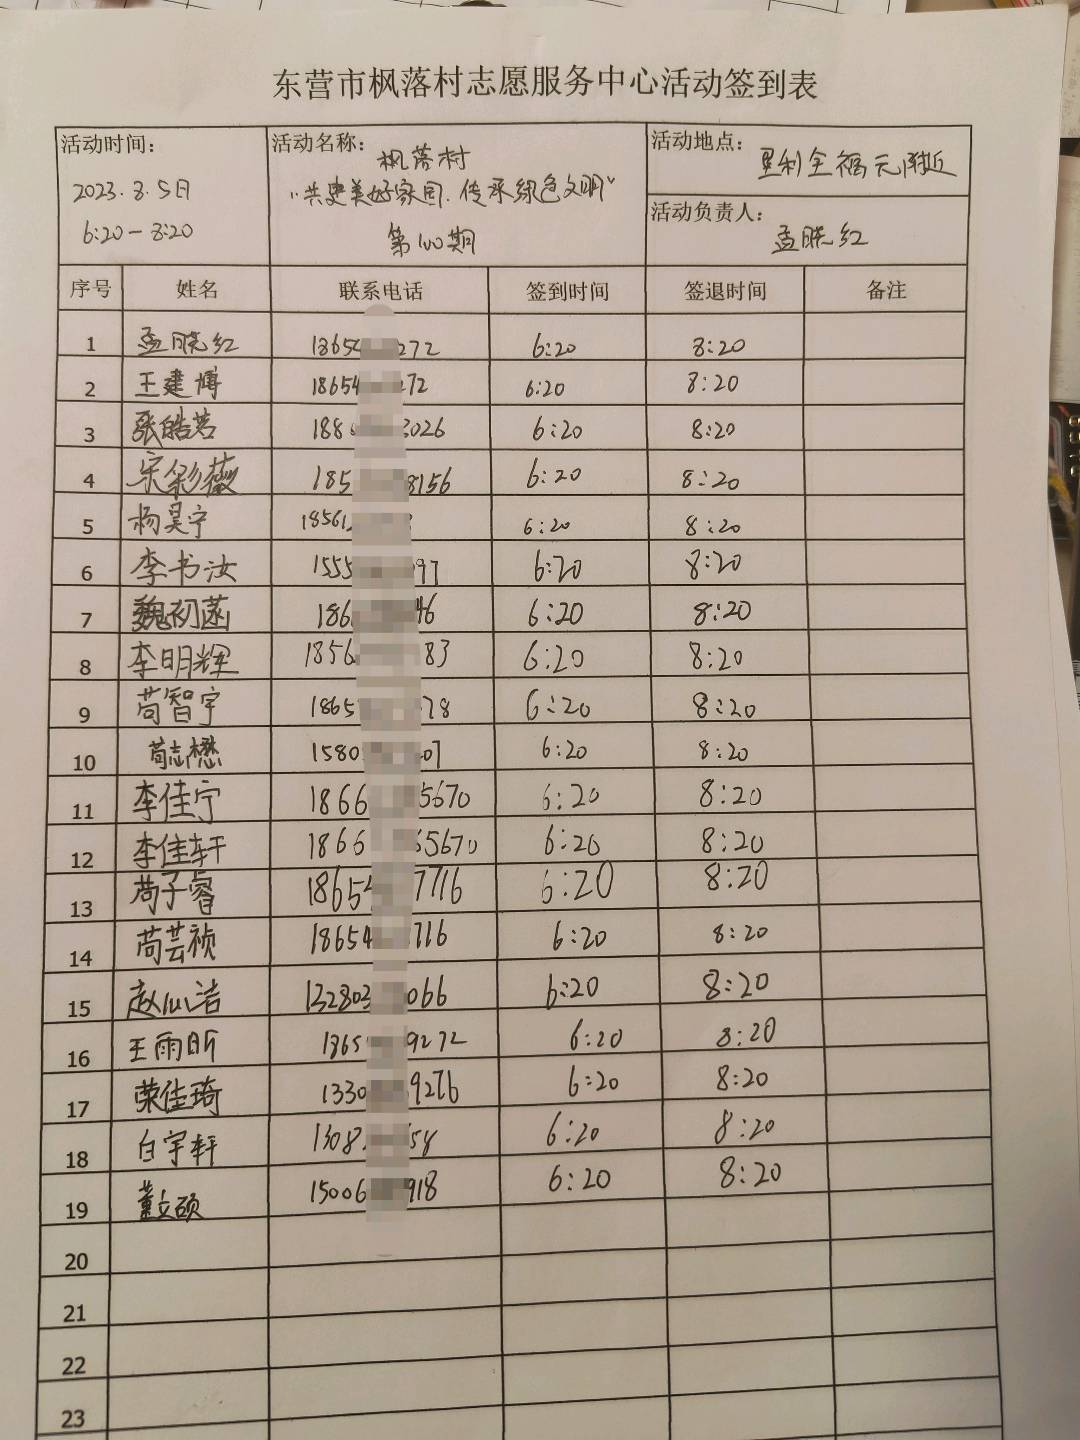 东营市枫落村志愿服务中心活动签到表
活动时间：
2023.8.5日
6:20-8:20
活动名称：
枫落村
“共建美好家园.传承绿色文明”
第100期
活动地点：
垦利全福元附近
活动负责人：
孟晓红
序号 姓名 联系电话 签到时间 签退时间 备注
1 孟晓红 18654 272 6:20 8:20
2 王建博 18654 272 6:20 8:20
3 张皓茗 188 3026 6:20 8:20
4 宋彩薇 185 8156 6:20 8:20
5 杨昊宁 18561 6:20 8:20
6 李书汝 1555 97 6:20 8:20
7 魏初菡 186 46 6:20 8:20
8 李明辉 1856 83 6:20 8:20
9 苘智宇 1865 78 6:20 8:20
10 苘志懋 1580 07 6:20 8:20
11 李佳宁 1866 5670 6:20 8:20
12 李佳轩 1866 65670 6:20 8:20
13 苘子睿 18654 7716 6:20 8:20
14 苘芸祯 18654 716 6:20 8:20
15 赵仙洁 132803 066 6:20 8:20
16 王雨昕 1865 9272 6:20 8:20
17 荣佳琦 1330 9276 6:20 8:20
18 白宇轩 1308 58 6:20 8:20
19 董立硕 15006 918 6:20 8:20
20
21
22
23